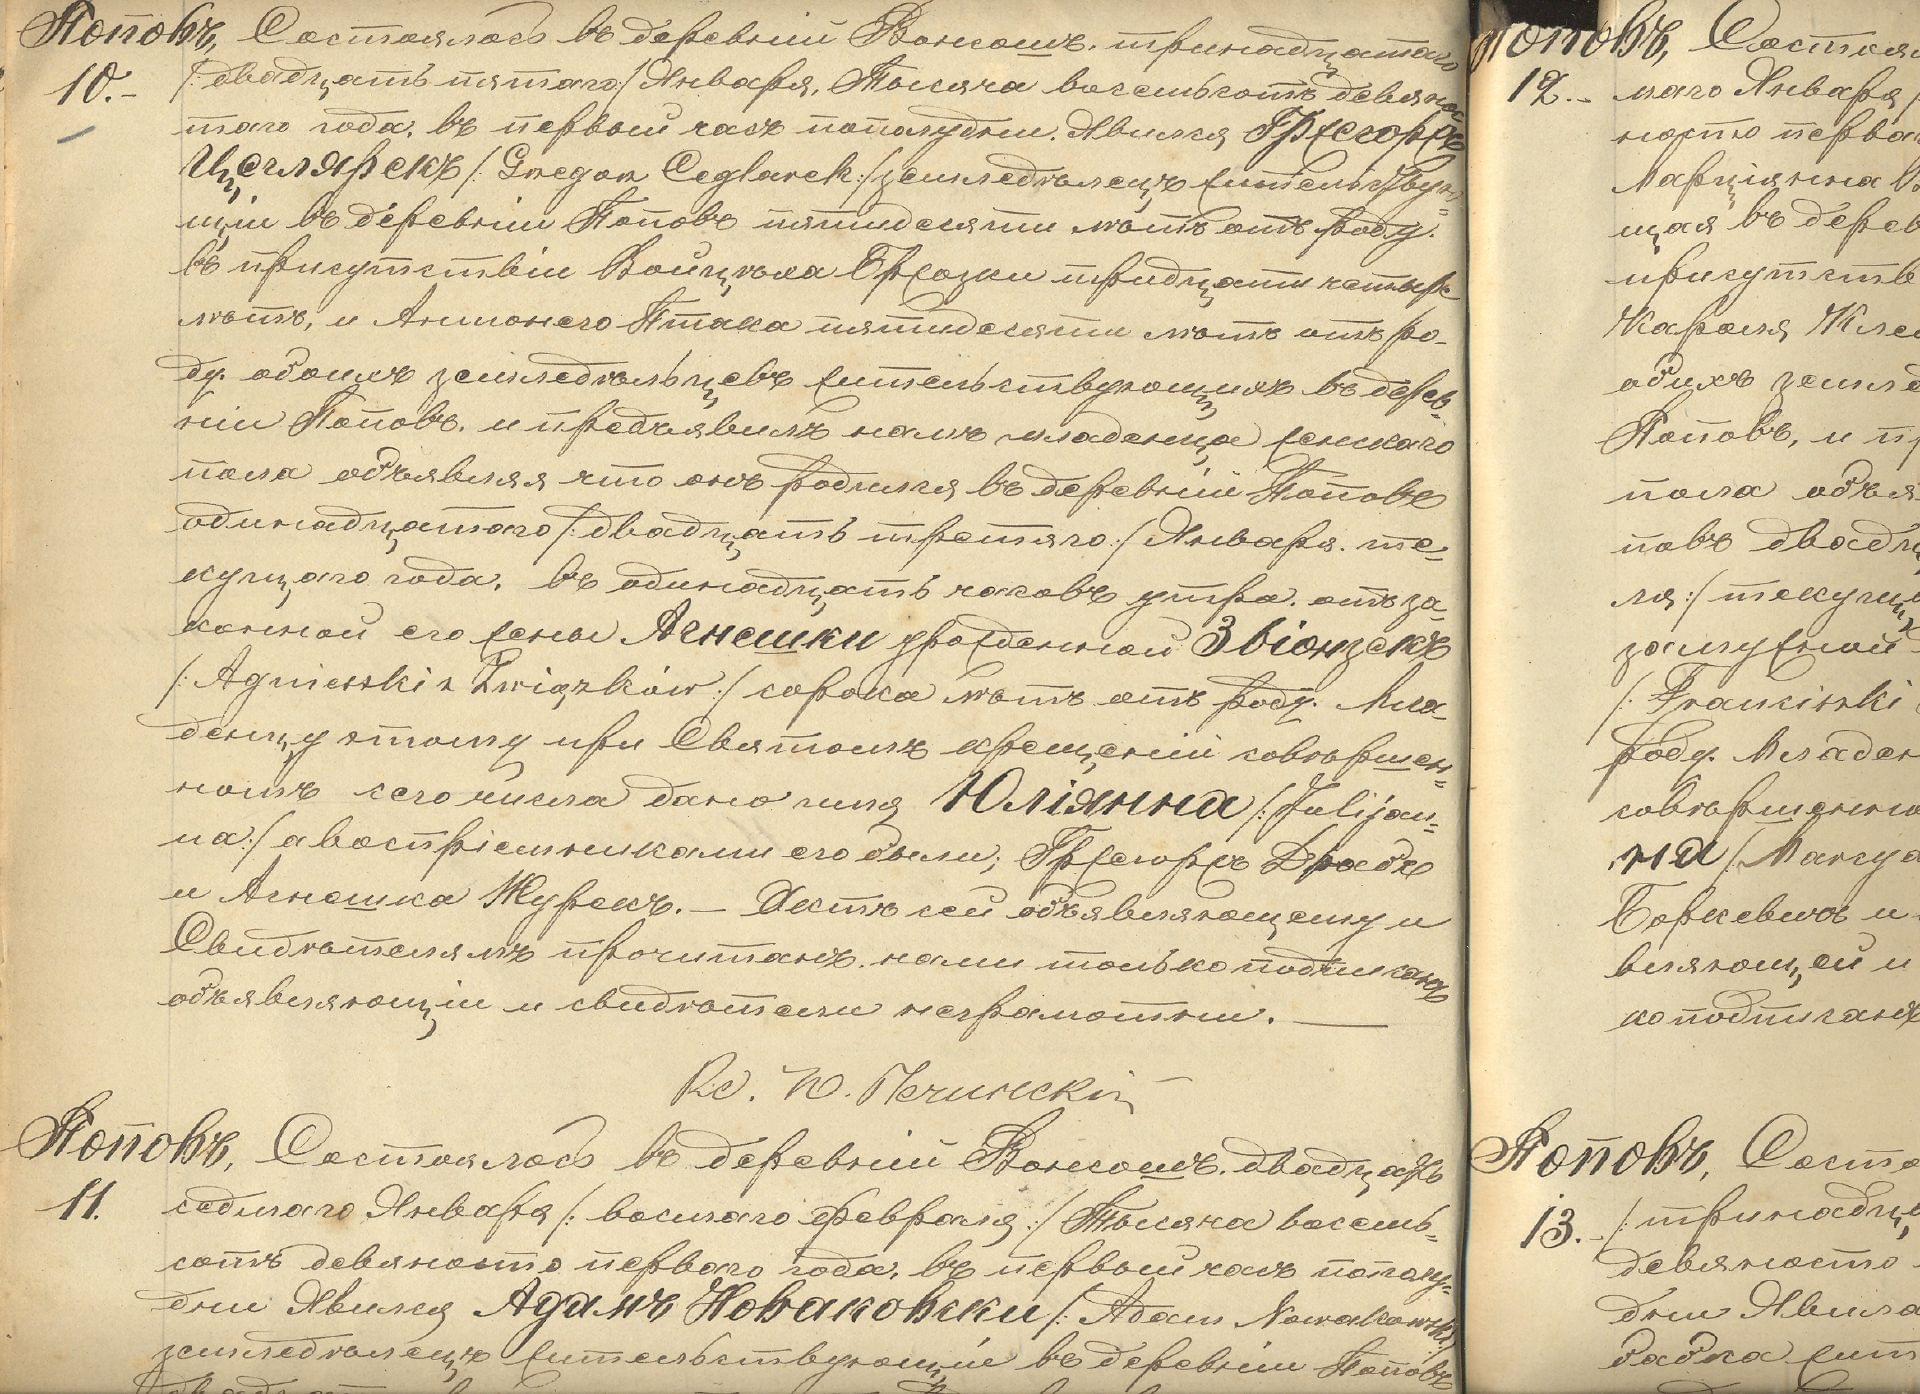 Поповъ, Состоялось въ деревнiи Вонсошъ. тринадцатаго
10.- /: двадцать пятаго :/ Января, Тысяча восемьсотъ девяно-
таго года, въ первый часъ пополудни. Явился Гржегоржъ
Цеглярекъ /: Gregor Ceglarek :/ земледѣлецъ жительствую=
щiи въ деревнiи Поповъ пятидесяти лѣтъ отъ роду.
въ присутствiи Войцѣха Гржозки тридцати четырѣ
лѣтъ, и Антонего Птака пятидесяти лѣтъ отъ ро-
ду. обоихъ земледѣльцевъ жительствующихъ въ дерев-
нiи Поповъ. и предъявилъ намъ младенца женскаго
пола объявляя что онъ родился въ деревнiи Поповъ
одинадцатаго /: двадцать третяго :/ Января. те-
кущаго года, въ одинадцать часовъ утра. отъ за-
конной его жены Агнешки урожденной Звiонзекъ
/: Agnieszki z Związków :/ сорока лѣтъ отъ роду. Мла-
денцу этому при Святомъ крещенiи совѣршен=
номъ сего числа дано имя Юлiянна /: Julijan=
na :/ а воспрiемниками его были; Гржегоржъ Драбъ
и Агнешка Журекъ. — Актъ сей объявляющему и
Свидѣтелямъ прочитанъ. нами только подписанъ
объявляющiи и свидѣтели неграмотни. —
Кс. Печинскiй
Поповъ, Состоялось въ деревнiи Вонсошъ. двадцать
11. седмаго Января /: восмаго февраля :/ Тысяча восемь=
сотъ девяносто первого года, въ первый часъ пополу=
дни Явился Адамъ Новаковски /: Adam Nowakowski :/
земледѣлецъ жительствующiи въ деревнiи Поповъ
Поповъ, Состоя
12.- маго Января /
ность перва
Марцiянна
щая въ дерев
присутств
Кароля
обихъ землед
Поповъ, и пр
пола объя
повъ двадц
ля :/ текущ
замужной
/: Franciszki
роду. Младен
совѣршенно
нна /:
Боркевичъ и
вляющей и
ко подписанъ
Поповъ, Состо
13.- /: тринадц
девяносто
дни Явила
бабка жит